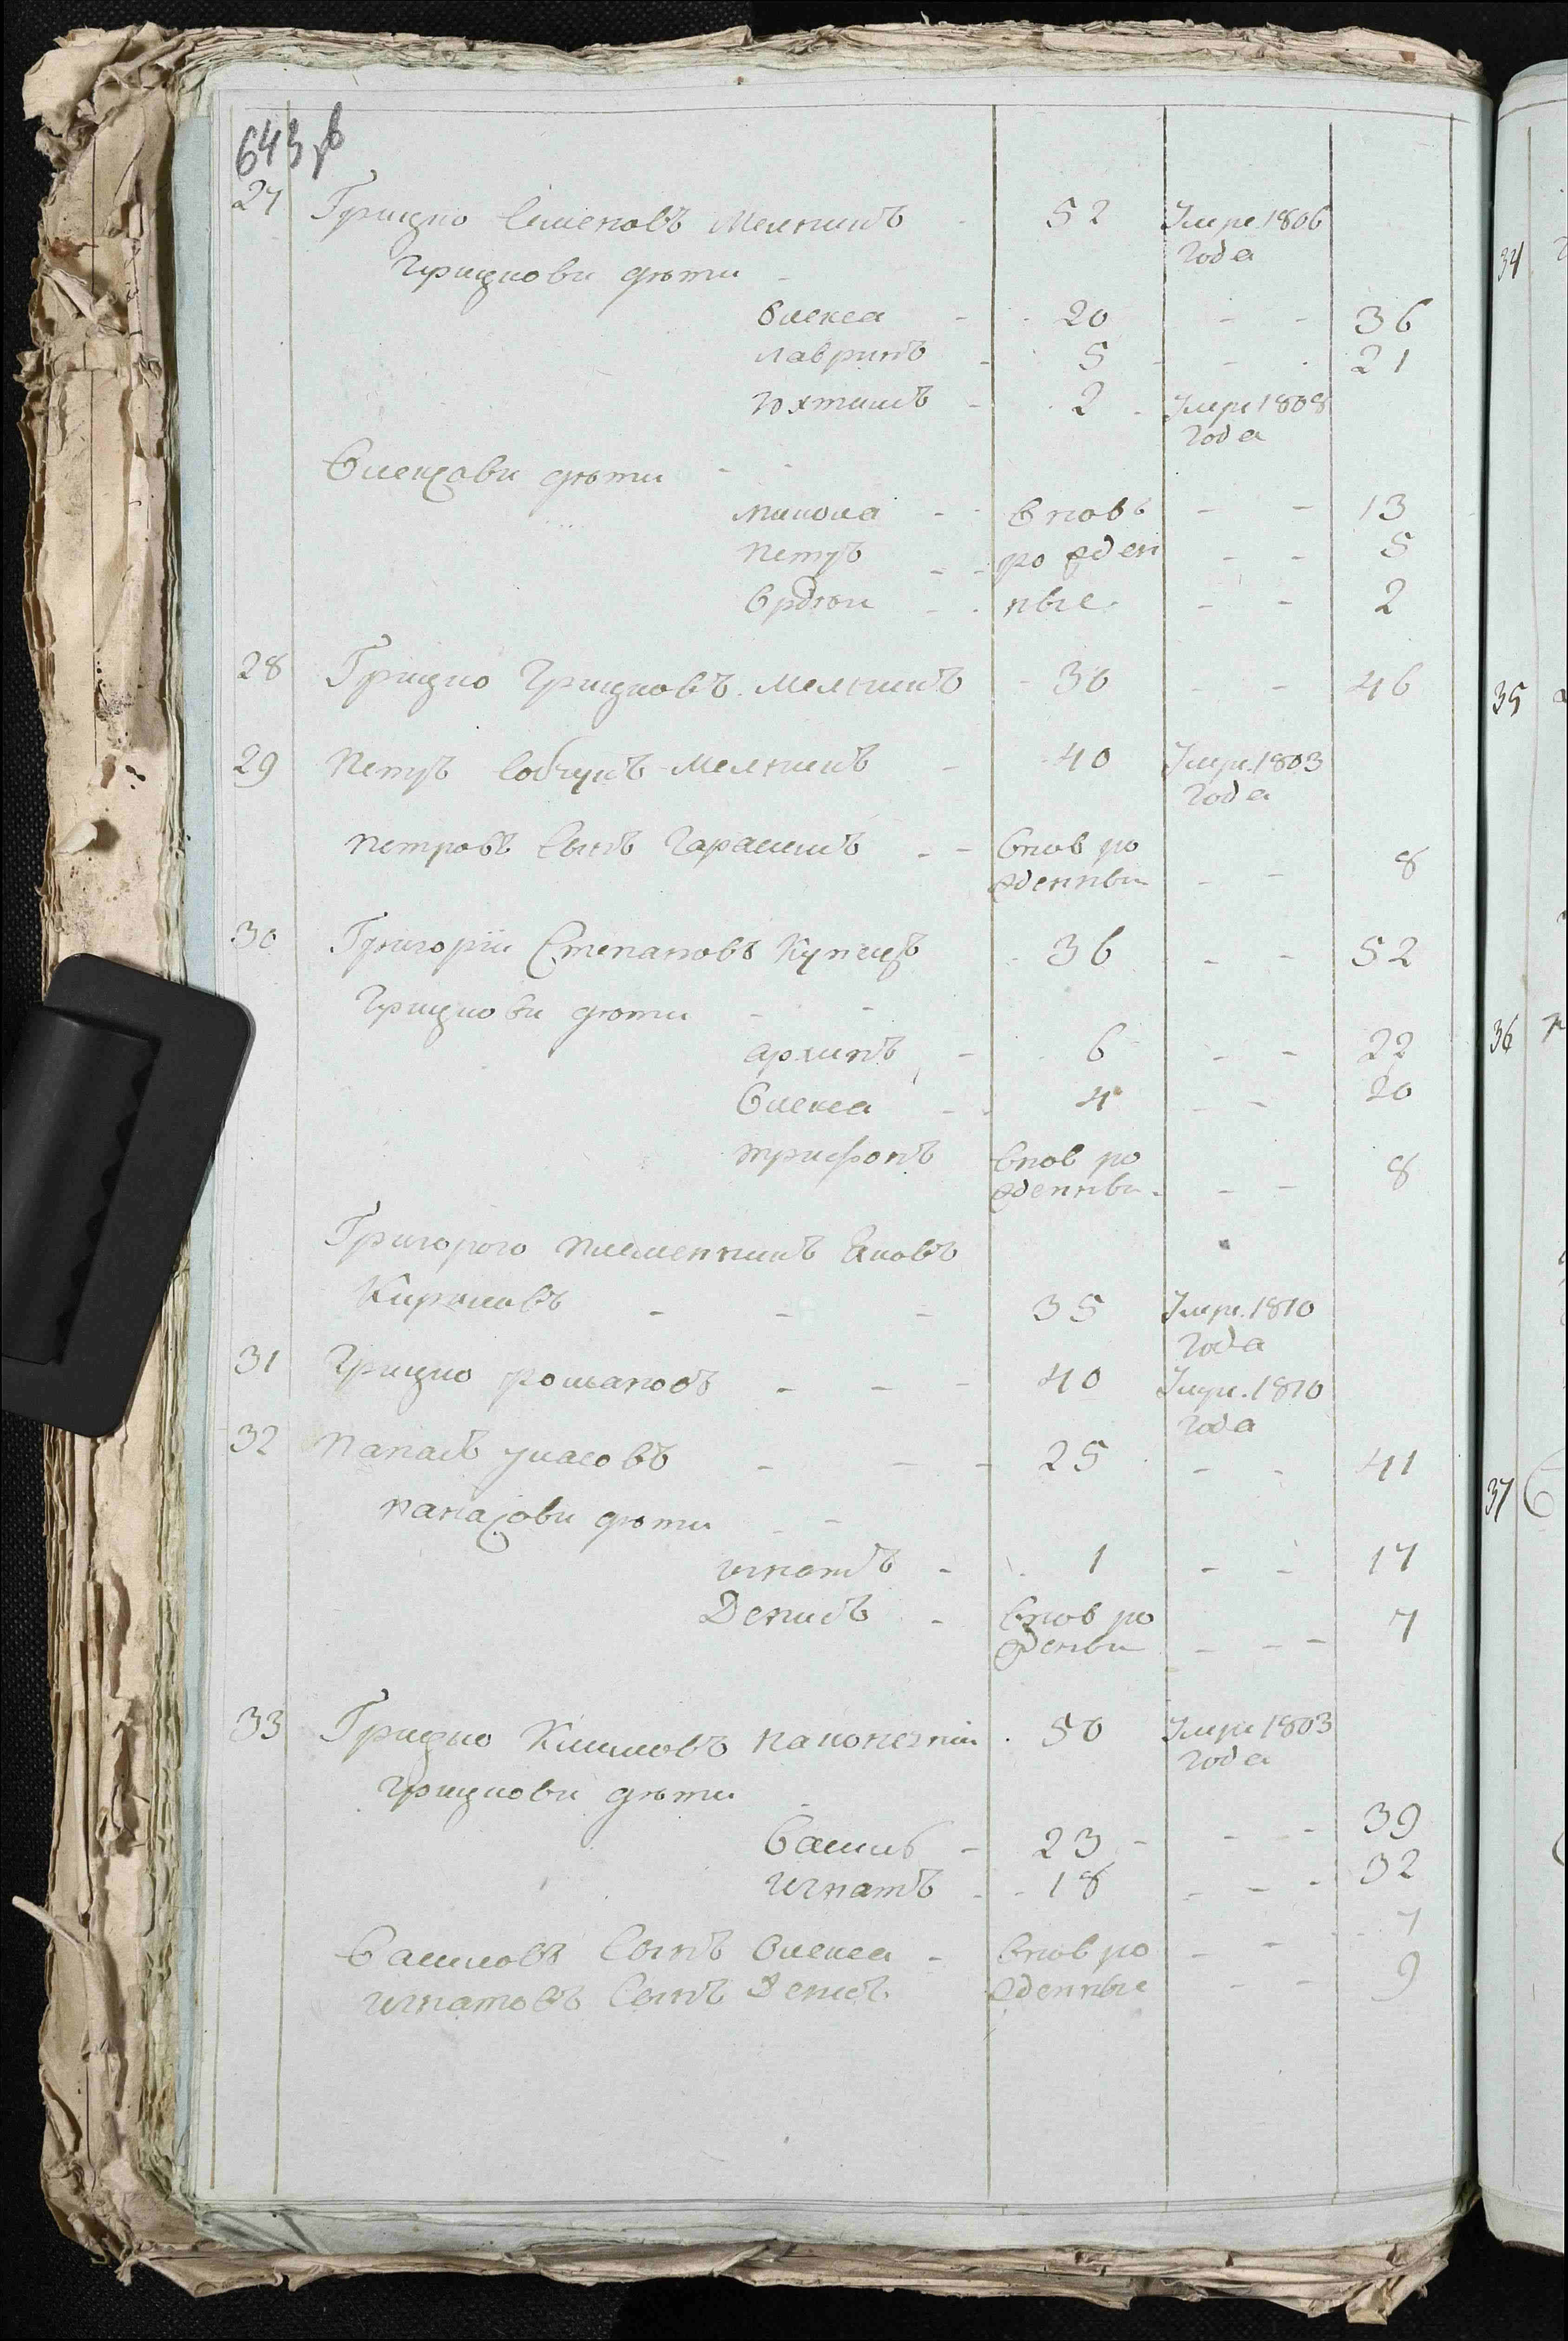 643 об
27 Грицко Семеновъ Мелникъ - 52 Умре 1806
года
Грицкови дѣти -
Олекса - 20 - - 36
Лавринъ - 5 - - 21
Юхтимъ - 2 - Умре 1808
года
Олексови дѣти - -
Микола - - вновь - - 13
Петръ - - рожден - - 5
Ордѣи - - ные - - 2
28 Грицко Грицковъ Мелникъ - 30 - - 46
29 Петръ Мелникъ - 40 Умре 1803
года
Петровъ сынъ Гарасимъ - - внов ро
жденны - - 8
30 Григорїи Степановъ Купецъ - 36 - - 52
Грицкови дѣти - -
Архипъ - 6 - - 22
Олекса - - 4 - - 20
Трифонъ внов ро
жденны - - - 8
Григорого племенникъ Яковъ
Кириловъ - - - 35 Умре 1810
года
31 Грицко Романовъ - - - 40 Умре 1810
года
32 Панасъ Уласовъ - - - 25 - - 41
Панасови дѣти - -
Игнатъ - 1 - - 17
Денисъ - внов ро
жденны - - - 7
33 Грицко Климовъ Наконечнїи 50 Умре 1803
года
Грицкови дѣти -
Василь - 23 - - - 39
Игнатъ - - 18 - - - 32
Василювъ сынъ Олекса - внов ро - - 7
Игнатовъ сынъ Денисъ жденные - - 9
34
35
36
37